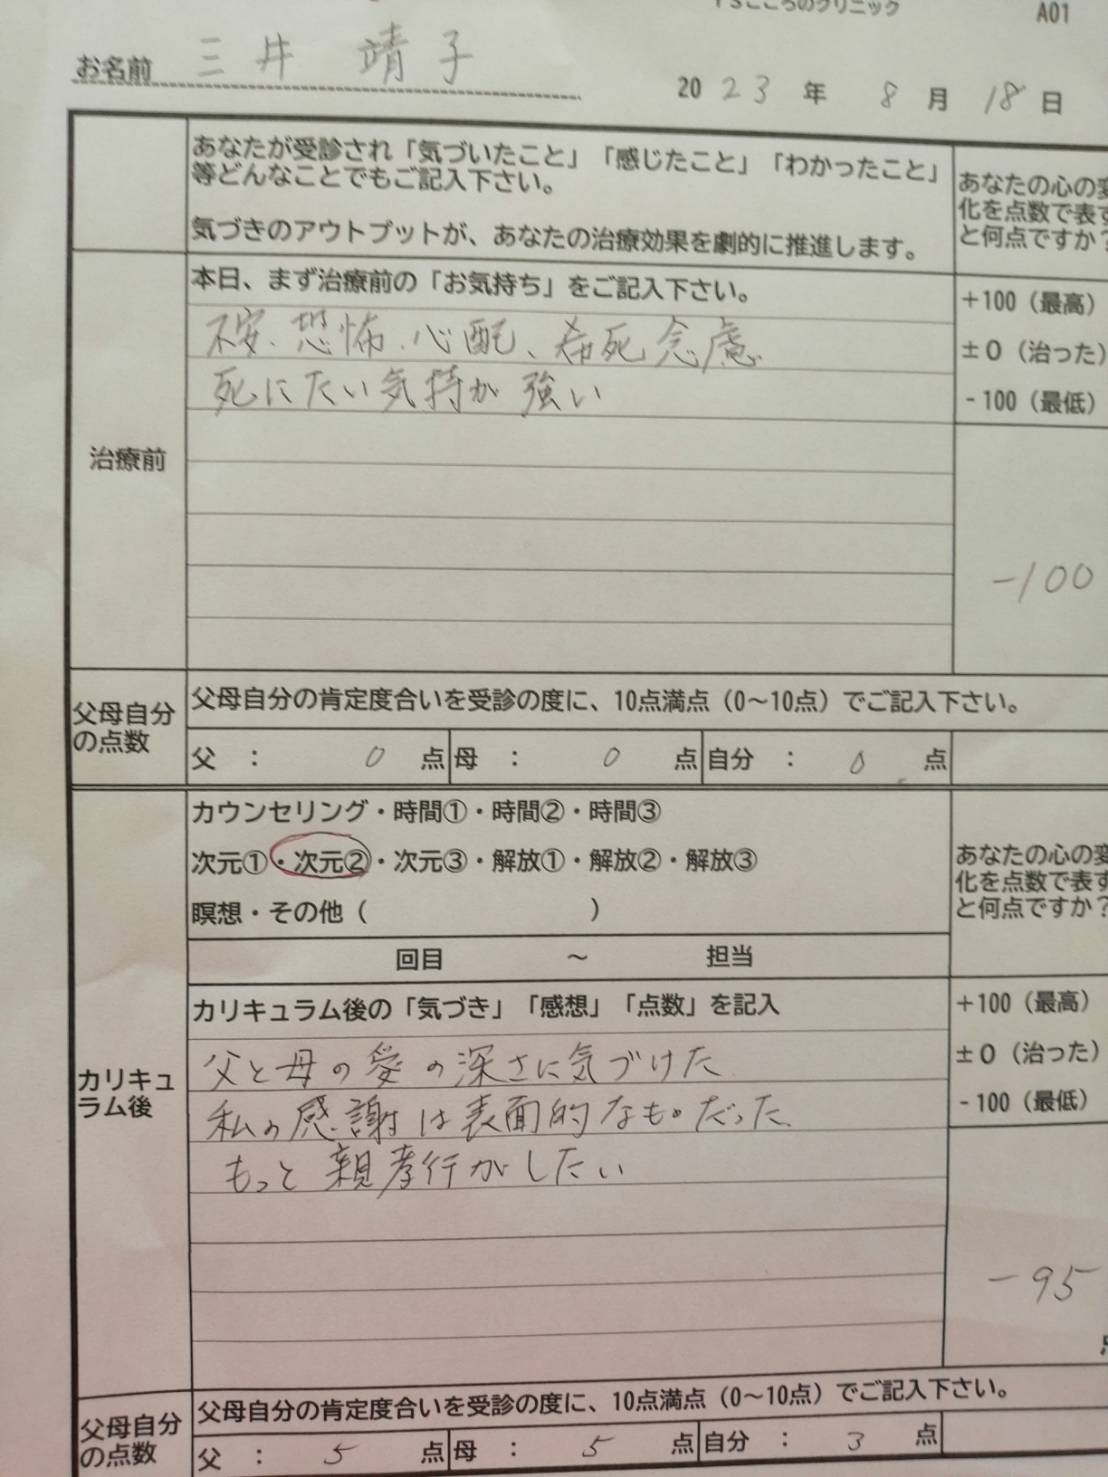 YSこころのクリニック
A01
お名前 三井 靖子
2023年 8月 18日
あなたが受診され「気づいたこと」「感じたこと」「わかったこと」
等どんなことでもご記入下さい。
気づきのアウトプットが、あなたの治療効果を劇的に推進します。
あなたの心の変
化を点数で表す
と何点ですか?
治療前
本日、まず治療前の「お気持ち」をご記入下さい。
不安、恐怖、心配、希死念慮
死にたい気持が強い
+100(最高)
±0(治った)
-100(最低)
-100
父母自分
の点数
父母自分の肯定度合いを受診の度に、10点満点(0〜10点)でご記入下さい。
父 : 0 点 母 : 0 点 自分 : 0 点
カウンセリング・時間①・時間②・時間③
次元①・次元②・次元③・解放①・解放②・解放③
瞑想・その他( )
回目 〜 担当
あなたの心の変
化を点数で表す
と何点ですか?
カリキュ
ラム後
カリキュラム後の「気づき」「感想」「点数」を記入
父と母の愛の深さに気づけた
私の感謝は表面的なものだった、
もっと親孝行がしたい
+100(最高)
±0(治った)
-100(最低)
-95
父母自分
の点数
父母自分の肯定度合いを受診の度に、10点満点(0〜10点)でご記入下さい。
父 : 5 点 母 : 5 点 自分 : 3 点